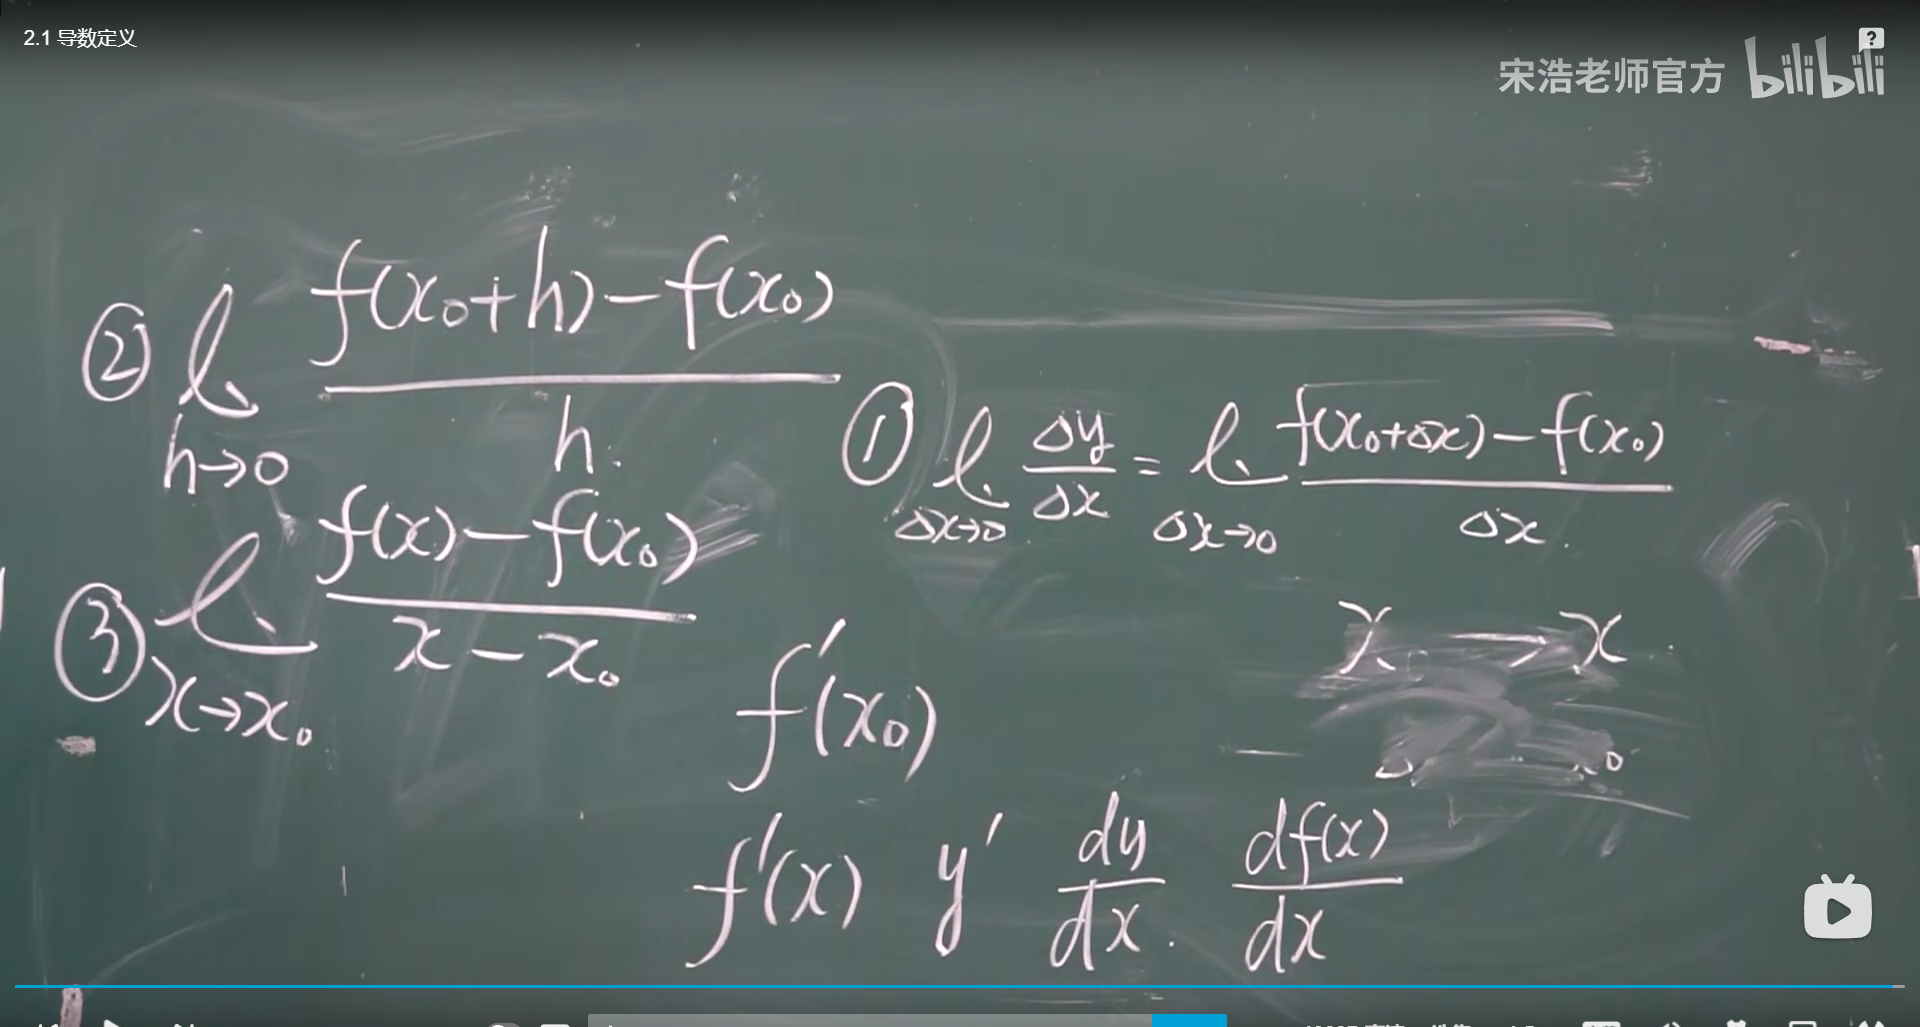 2.1 导数定义
宋浩老师官方 bilibili
② l h→0 f(x₀+h)−f(x₀) / h
① l Δx→0 Δy/Δx = l Δx→0 f(x₀+Δx)−f(x₀) / Δx
③ l x→x₀ f(x)−f(x₀) / x−x₀
x₀ → x
f′(x₀)
f′(x) y′ dy/dx df(x)/dx